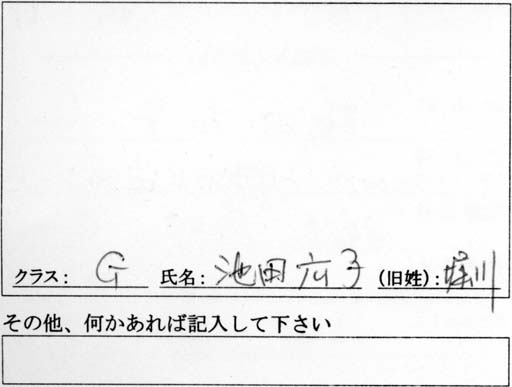 クラス: G 氏名: 池田広子 (旧姓): 堀川
その他、何かあれば記入して下さい